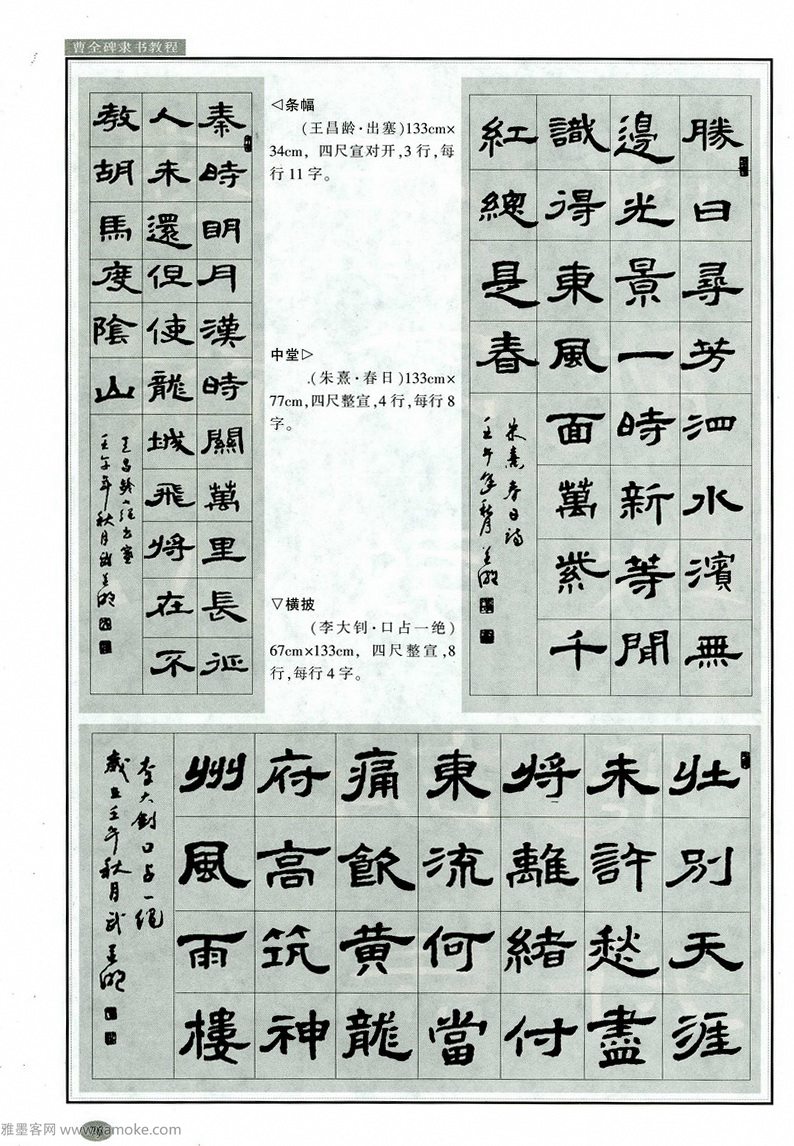 曹全碑隶书教程
秦時明月漢時關萬里長征
人未還但使龍城飛將在不
教胡馬度陰山
王昌齡出塞
壬午年秋月武
◁条幅
(王昌龄·出塞)133cm×
34cm，四尺宣对开,3行,每
行11字。
中堂▷
.(朱熹·春日)133cm×
77cm,四尺整宣,4行,每行8
字。
▽横披
(李大钊·口占一绝)
67cm×133cm，四尺整宣,8
行,每行4字。
勝日尋芳泗水濱無
邊光景一時新等閒
識得東風面萬紫千
紅總是春
朱熹春日詩
壬午年秋月
壯別天涯
未許愁盡
將離緒付
東流何當
痛飲黃龍
府高筑神
州風雨樓
李大釗口占一絕
歲在壬午秋月武
雅墨客网 www.yamoke.com